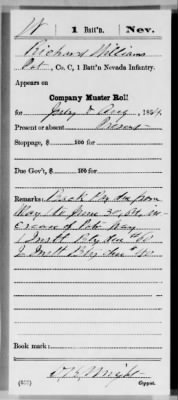 W 1 Batt'n. Nev.
Richard Williams
Pvt., Co. C, 1 Batt'n Nevada Infantry.
Appears on
Company Muster Roll
for July & Aug, 1864.
Present or absent Present
Stoppage, $ 100 for
Due Gov't, $ 100 for
Remarks: Back Pay due from
May 1 to June 30, 64, in
excess of Pvts Pay
1 Instl Bty due
2 Instl Bty due
Book mark:
Wright
Copyist.